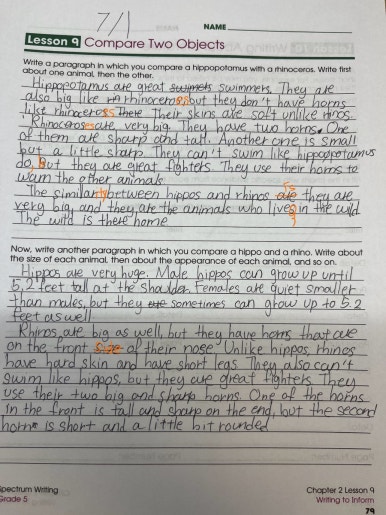 7/1
NAME
Lesson 9 Compare Two Objects
Write a paragraph in which you compare a hippopotamus with a rhinoceros. Write first
about one animal, then the other.
Hippopotamus are great swimmers. They are
also big like rhinoceros but they don't have horns
like rhinoceros. Their skins are soft unlike rhinos.
Rhinoceros are very big. They have two horns. One
of them are sharp and tall. Another one is small
but a little sharp. They can't swim like hippopotamus
do, But they are great fighters. They use their horns to
warn the other animals.
The similar between hippos and rhinos are they are
very big and they are the animals who live in the wild.
The wild is there home
Now, write another paragraph in which you compare a hippo and a rhino. Write about
the size of each animal, then about the appearance of each animal, and so on.
Hippos are very huge. Male hippos can grow up until
5.2 feet tall at the shoulder. Females are quiet smaller
than males, but they sometimes can grow up to 5.2
feet as well
Rhinos are big as well, but they have horns that are
on the front size of their nose. Unlike hippos, rhinos
have hard skin and have short legs. They also can't
swim like hippos, but they are great fighters. They
use their two big and sharp horns. One of the horns
in the front is tall and sharp on the end, but the second
horn is short and a little bit rounded.
Spectrum Writing
Grade 5
Chapter 2 Lesson 9
Writing to Inform
79